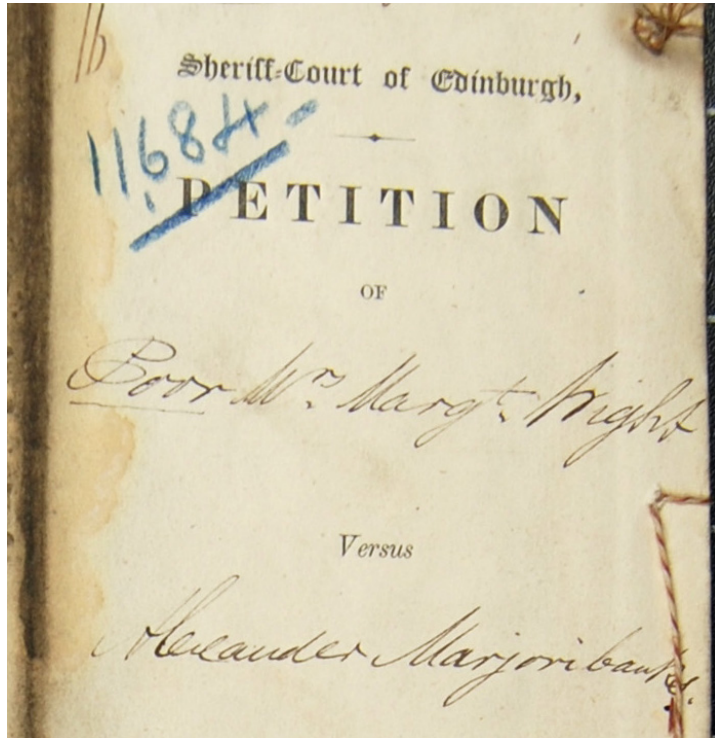 16
Sheriff-Court of Edinburgh,
11684
PETITION
OF
Poor Mrs Margt. Wight
Versus
Alexander Marjoribanks.